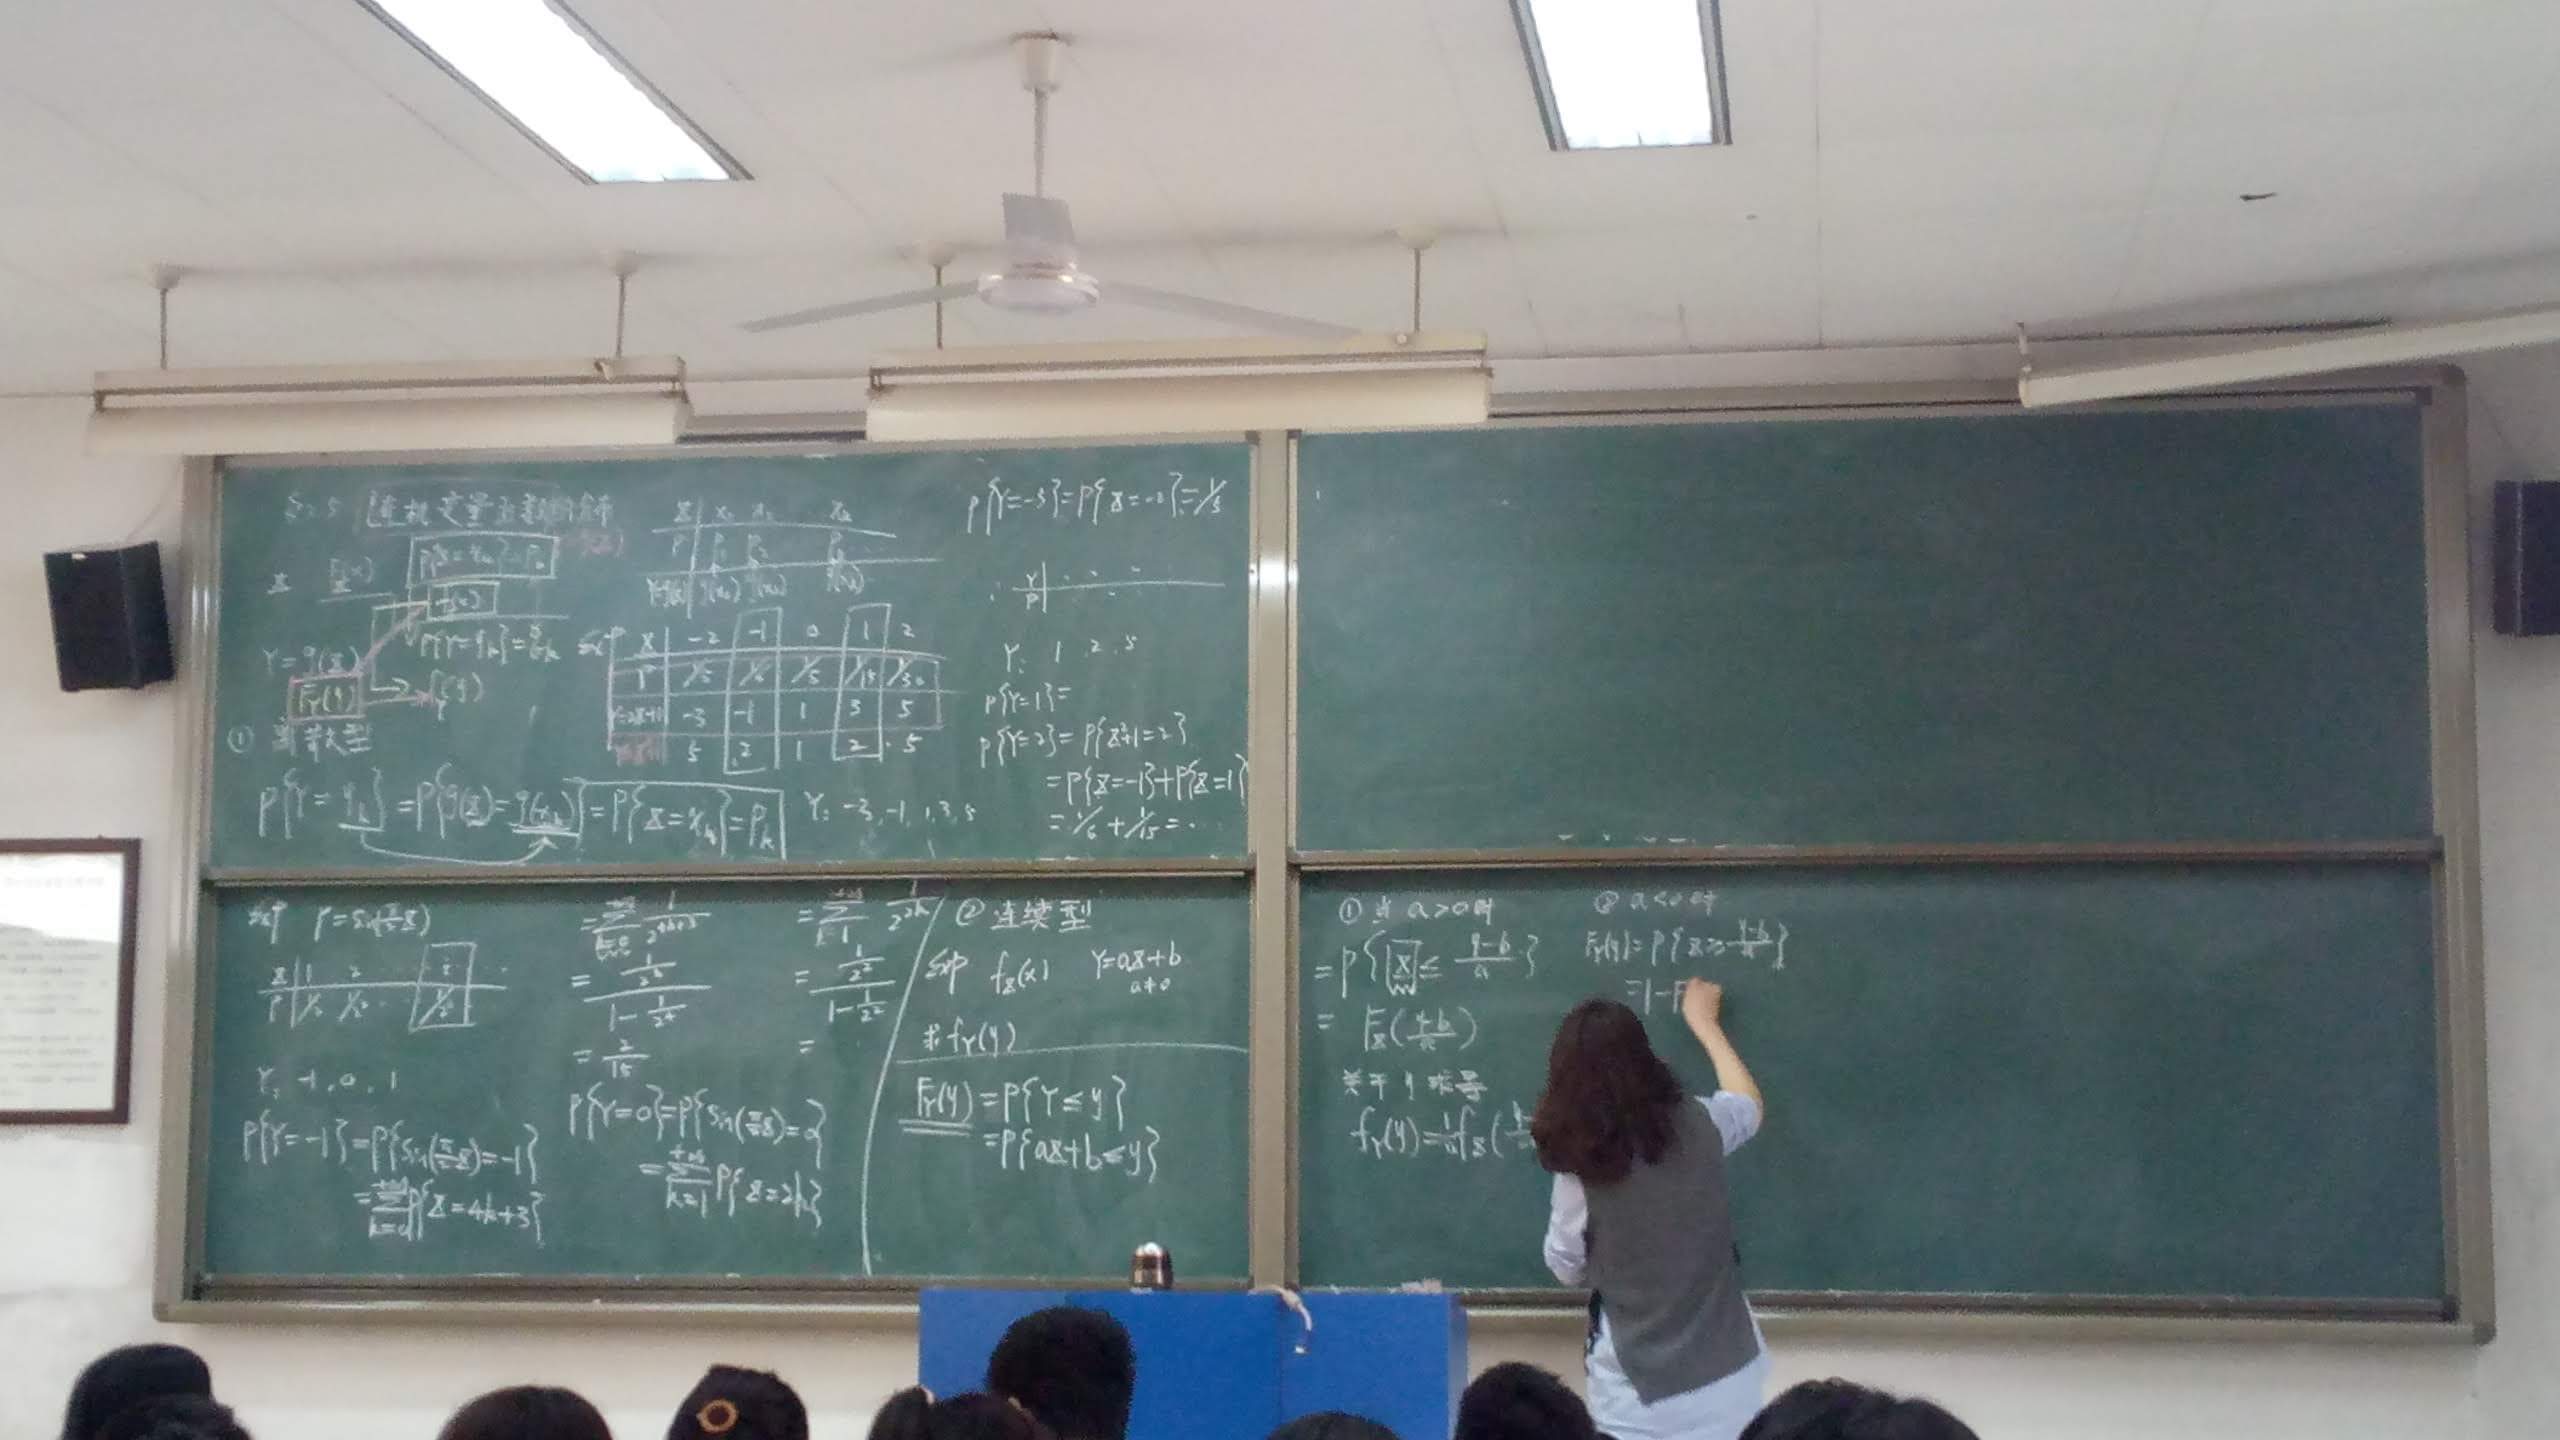 §2.5 随机变量函数的分布
F(x)
P{X=xk}=Pk
f(x)
Y=g(X)
P{Y=yk}=
FY(y)
fY(y)
① 离散型
P{Y=yk}=P{g(X)=g(xk)}=P{X=xk}=Pk
X x1 x2 xk
P P1 P2 Pk
Y=g(X) g(x1) g(x2) g(xk)
X -2 -1 0 1 2
P 1/5 1/6 1/5 1/15 11/30
Y=2X+1 -3 -1 1 3 5
5 2 1 2 5
Y: -3, -1, 1, 3, 5
P{Y=-3}=P{X=-2}=1/5
Y
P
Y: 1 2 5
P{Y=1}=
P{Y=2}=P{X²+1=2}
=P{X=-1}+P{X=1}
=1/6+1/15=...
exp Y=sin(π/2 X)
X 1 2
P 1/2 1/2²
Y: -1, 0, 1
P{Y=-1}=P{sin(π/2 X)=-1}
=∑ k=0 +∞ P{X=4k+3}
=∑ k=0 +∞ 1/2^(4k+3)
=(1/2³)/(1-1/2⁴)
=2/15
P{Y=0}=P{sin(π/2 X)=0}
=∑ k=1 +∞ P{X=2k}
=∑ k=1 +∞ 1/2^(2k)
=(1/2²)/(1-1/2²)
=
② 连续型
exp fX(x) Y=aX+b
a≠0
求 fY(y)
FY(y)=P{Y≤y}
=P{aX+b≤y}
① 当 a>0时
=P{X≤(y-b)/a}
=FX((y-b)/a)
关于 y 求导
fY(y)=1/a fX(
② a<0时
FY(y)=P{X≥(y-b)/a}
=1-F